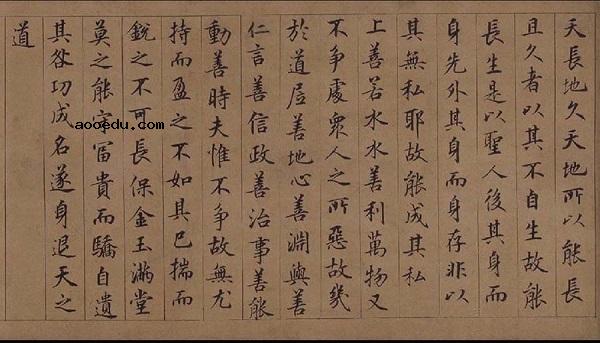 天長地久天地所以能長
且久者以其不自生故能
長生是以聖人後其身而
身先外其身而身存非以
其無私耶故能成其私
上善若水水善利萬物又
不爭處衆人之所惡故幾
於道居善地心善淵與善
仁言善信政善治事善能
動善時夫惟不爭故無尤
持而盈之不如其已揣而
銳之不可長保金玉滿堂
莫之能守富貴而驕自遺
其咎功成名遂身退天之
道
aooedu.com